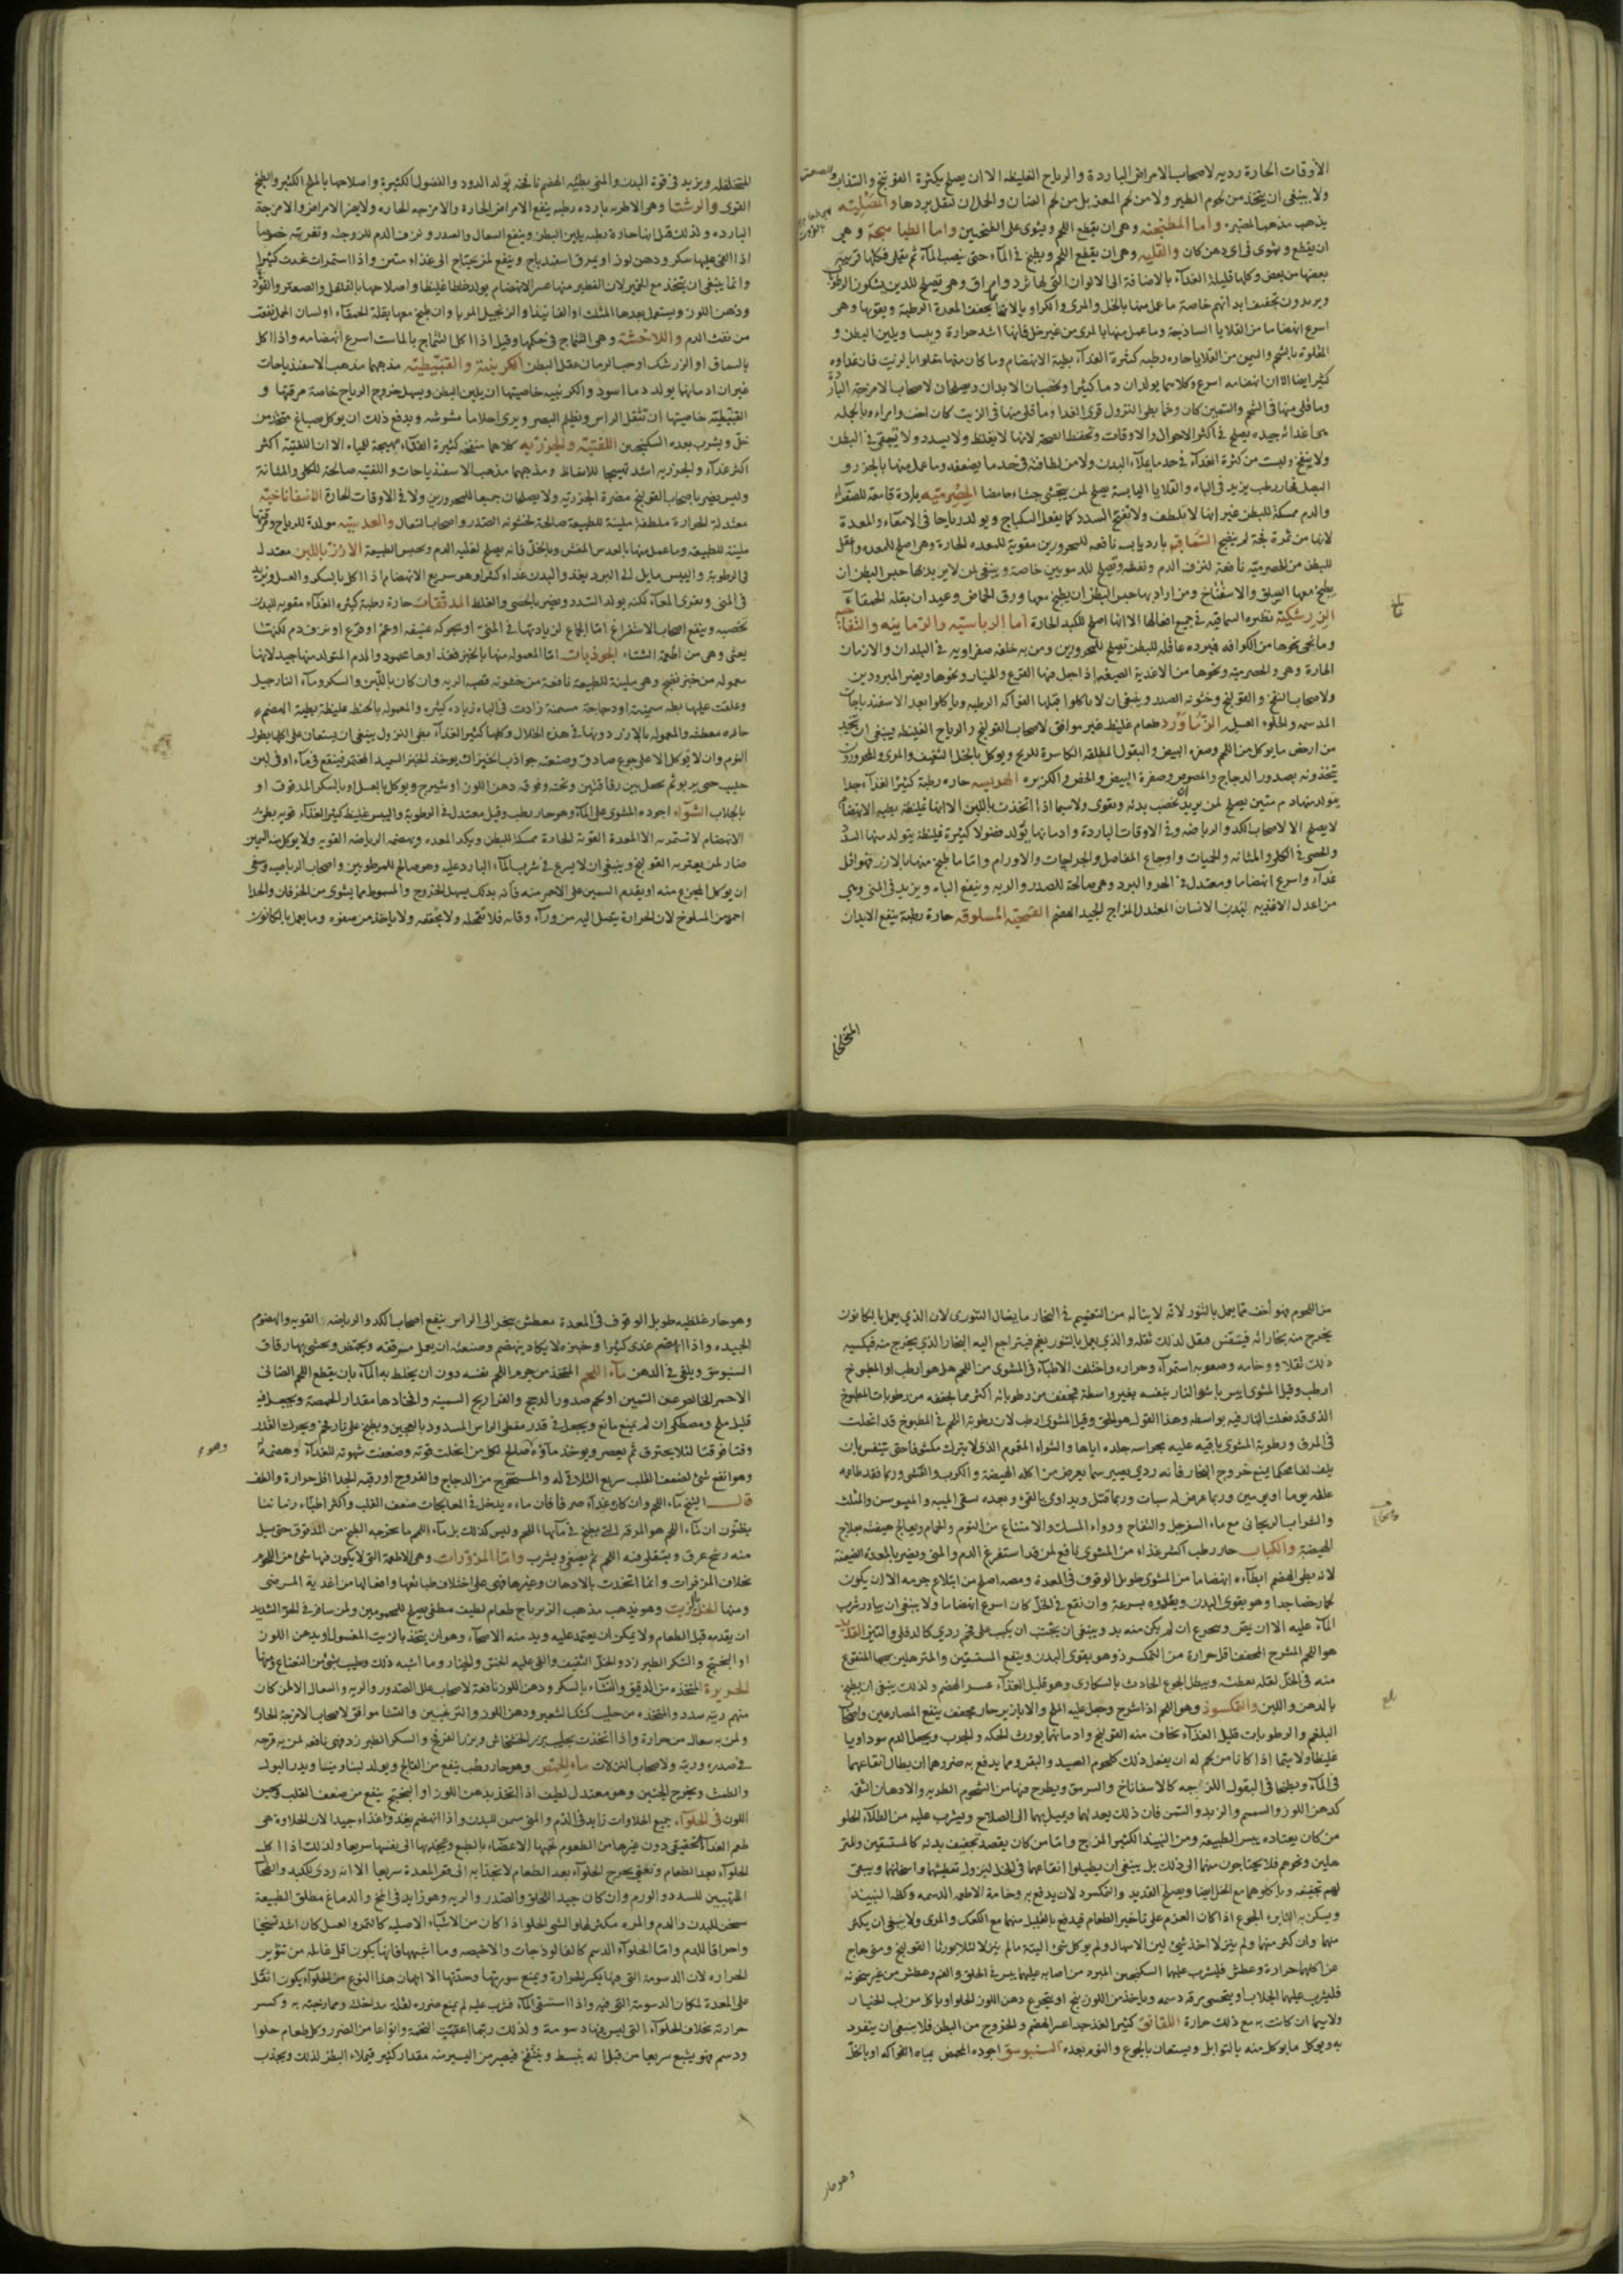 الأوقات الحارة رديه لاصحاب الامراض الباردة والرياح الغليظه الا ان يصلح بكثرة الفوتنج والسذاب والصعتر
ولا ينبغي ان يتخذ من لحوم الطير ولا من لحم المعز بل من لحم الضان والحملان تقل بردها والمصليه
يذهب مذهب المضيره واما المطجنه وهي ان يقطع اللحم ويشوى على الطجين واما الطباهجة وهي
ان يقطع ويشوى في اي دهن كان والقليه وهي ان يقطع اللحم ويطبخ في الماء حتى ينصب الماء ثم يقلى فكلها قريبة
بعضها من بعض وكلها قليلة الغذاء بالاضافة الى الالوان التي لها ثرد وامراق وهي تصلح للذين يشكون الرطوبة
ويريدون تجفيف ابدانهم خاصة ما عمل منها بالخل والمري والكراويا لانها تجفف المعدة الرطبة ويقويها وهي
اسرع انهضاما من القلايا الساذجة وما عمل منها بالمري من غير خل فانها اشد حرارة ويبسا ويلين البطن و
المقلوة بالشحم والسمن من القلايا حاره رطبه كثيرة الغذاء بطية الانهضام وما كان منها مقلوا بالزيت فان غذاوه
كثير ايضا الا ان انهضامه اسرع وكلاهما يولدان دما كثيرا ويخصبان الابدان ويصلحان لاصحاب الامزجة الباردة
وما قلي منها في الشحم والسمين كان وخما بطي النزول قوي الغذا وما قلي منها في الزيت كان اخف وامراء وبالجمله
هي اغذائه جيده يصلح في اكثر الاحوال والاوقات وتحفظ الصحة لانها لا يغلظ ولا يسدد ولا تبقى في البطن
ولا ينفخ وليست من كثرة الغذاء في حد ما يملاء البدن ولا من لطافته في حد ما يضعفه وما عمل منها بالجزر و
البصل فحار رطب يزيد في الباه والقلايا اليابسة يصلح لمن يتجشى جشاء حامضا الحصرميه باردة قامعة للصفراء
والدم ممسكة للبطن غير انها لا يلطف ولا تفتح السدد كما يفعل السكباج ويولد رياحا في الامعاء والمعدة
لانها من ثمرة فجة لم ينضج السماقيه بارد يابسه نافعه للمحرورين مقوية للمعده الحارة وهي اصلح للمعده واعقل
للبطن من الحصرميه نافعة لنزف الدم ونفثه وتصلح للدمويين خاصة وينبغي لمن لا يريد بها حبس البطن ان
يطبخ معها السلق والاسفناخ ومن اراد بها حبس البطن ان يطبخ معها ورق الحماض وعيدان بقله الحمقاء
الزرشكية نظيره السماقيه في جميع افعالها الا انها اصلح للكبد الحارة اما الريباسيه والرمانيه والتفاحيه
وما نحى نحوها من الفواكه فمبرده عاقله للبطن تصلح للمحرورين ومن به خلفه صفراويه في البلدان والازمان
الحارة وهي والحصرميه ونحوها من الاغذية الصيفيه اذا جعل فيها القرع والخيار ونحوها ويضر المبرودين
ولاصحاب النفخ والقولنج وخشونه الصدر وينبغي ان لا ياكلوا قبلها الفواكه الرطبه وياكلوا بعدها الاسفيذباجات
الدسمه والحلوء العسل الزماورد طعام غليظ غير موافق لاصحاب القولنج والرياح الغليظه وينبغي ان يتخذ
من ارخص ما يوكل من اللحم وصفره البيض والبقول المطلقه الكاسرة للريح ويوكل بالخل الثقيف والمري والمحرورون
يتخذونه بصدور الدجاج والمصوص وصفرة البيض والخس والكزبره الهريسه حاره رطبة كثيرة الغذاء جدا
يتولد منها دم متين يصلح لمن يريد ان يخصب بدنه ويقوى ولا سيما اذا اتخذت باللبن الا انها غليظة بطيه الانهضام
لا يصلح الا لاصحاب الكد والرياضه وفي الاوقات الباردة وادمانها يولد فضولا كثيرة غليظة يتولد منها السدد
والحصى في الكلى والمثانه والحميات واوجاع المفاصل والجراحات والاورام واما ما طبخ منها بالارز فهو اقل
غذاء واسرع انهضاما ومعتدل في الحر والبرد وهي صالحة للصدر والريه وينفع الباه ويزيد في المني وهي
من اعدل الاغذيه لبدن الانسان المعتدل المزاج الجيد الهضم القمحيه المسلوقه حارة رطبة ينفع الابدان
المتخلخله
المتخلخله ويزيد في قوة البدن والمني بطيئه الهضم نافخة يولد الدود والفضول الكثيرة واصلاحها بالملح الكثير والطبخ
القوى والرشتا وهي الاطريه بارده رطبه ينفع الامراض الحارة والامزجه الحاره ولا يضر الامراض والامزجة
البارده ولذلك قيل انها حارة رطبه يلين البطن وينفع السعال والصدر ونزف الدم للزوجته وتغريته خصوصا
اذا القي عليها سكر ودهن لوز او بمرق اسفيدباج وينفع لمن يحتاج الى غذاء متين واذا استمرات غذت كثيرا
وانما ينبغي ان يتخذ مع الخمير لان الفطير منها عسر الانهضام يولد خلطا غليظا واصلاحها بالفلفل والصعتر والفوذ
ودهن اللوز ويستعمل بعدها المثلث او الفانيذ او الزنجبيل المربا وان طبخ معها بقلة الحمقاء او لسان الحمل نفعت
من نفث الدم واللاخشة وهي التتماج في حكمها وقيل اذا اكل التتماج بالماست اسرع انهضامه واذا اكل
بالسماق او الزرشك او حب الرمان عقل البطن الكرنبية والقنبيطيه مذهبهما مذهب الاسفيذباجات
غير ان ادمانها يولد دما اسود والكرنبيه خاصيتها ان يلين البطن ويسهل خروج الرياح خاصة مرقتها و
القنبيطيه خاصيتها ان تثقل الراس ويظلم البصر ويرى احلاما مشوشه ويدفع ذلك ان يوكل صباغ متخذ من
خل ويشرب بعده السكنجبين اللفتيه والجزريه كلاهما منفخ كثيرة الغذاء مهيجة للباء الا ان اللفتيه اكثر
اكثر غذاء والجزريه اشد تهييجا للانعاظ ومذهبهما مذهب الاسفيذباجات واللفتيه صالحة للكلى والمثانة
وليس يضر باصحاب القولنج مضرة الجزريه ولا يصلحان جميعا للمحرورين ولا في الاوقات الحارة الاسفاناخيه
معتدلة الحرارة ملطفة ملينة للطبيعة صالحة لخشونه الصدر واصحاب السعال والعدسيه مولدة للرياح ومرقتها
ملينة للطبيعه وما عمل منها بالعدس المقشر وبالخل فانه يصلح لغليه الدم ويحبس الطبيعة الارز باللبن معتدل
في الرطوبة واليبس مايل الى البرد يغذو البدن غذاء كثيرا وهو سريع الانهضام اذا اكل بالسكر والعسل ويزيد
في المني ويغرى المعاء لكنه يولد السدد ويضر بالحصى والغلظ المدققات حارة رطبة كثيره الغذاء مقويه للبدن
مخصبه وينفع اصحاب الاستفراغ اما الجماع لزيادتها في المني او بحركه عنيفه او غم او فزع او نزف دم لكنها
يعيى وهي من اطعمة الشتاء الجوذبات اما المعموله منها بالخبز فغذاوها محمود والدم المتولد منها جيد لانها
معمولة من خبز نضج وهي ملينة للطبيعة نافعة من خشونه قصبه الريه وان كان باللبن والسكر وماء النارجيل
وعلقت عليها بطه سمينة او دجاجة مسمنة زادت في الباه زياده كثيره والمعموله بالحنطه غليظة بطية الهضم
حاره معطشه والمعموله بالارز دونها في هذه الخلال وكلها كثير الغذاء بطي النزول ينبغي ان يستعان على اكلها بطول
النوم وان لا يوكل الا على جوع صادق وصنعة جواذب الخبز ان يوخذ الخبز السميد المختمر فينقع في ماء او في لبن
حليب حتى يربو ثم يجعل بين رقاقتين وتحته وفوقه دهن اللوز او شيرج ويوكل بالعسل او بالسكر المدقوق او
بالجلاب الشواء اجوده المشوى على الماء وهو حار رطب وقيل معتدل في الرطوبة واليبس غليظ كثير الغذاء قويه بطئ
الانهضام لا تستمريه الا المعدة القوية الحارة ممسكة للبطن ويكد المعده ويهضمه الرياضه القويه ولا يوكل منه السمين
ضار لمن يعتريه القولنج وينبغي ان لا يسرع في شرب الماء البارد عليه وهو صالح للمرطوبين واصحاب الرياضه وينبغي
ان يوكل المجزع منه او يقدم السمين على الاحمر منه فانه بذلك يسهل الخروج والمسموط مما يشوى من الخرفان والجدا
احمد من المسلوخ لان الحرارة يتصل اليه من وراء وقايه فلا تقحله ولا يجففه ولا ياخذ من صفوه وما يعمل بالكانون
من اللحوم فهو أخف مما يعمل بالتنور لانه لا يناله من التغميم في البخار ما ينال التنوري لان الذي يعمل بالكانون
يخرج منه بخاراته فيتنفس فيقل لذلك ثقله والذي يعمل بالتنور يغم فيتراجع اليه البخار الذي يخرج منه فيكسبه
ذلك ثقلا ووخامه وصعوبه استمراء وحراره واختلف الاطباء في المشوى من اللحم هل هو ارطب او المطبوخ
ارطب وقيل المشوى ايبس باشر النار بنفسه بغير واسطة فجفف من رطوباته أكثر مما يجففه من رطوبات المطبوخ
الذي قد فعلت النار فيه بواسطه وهذا القول هو الحق وقيل المشوى ارطب لان رطوبة اللحم في المطبوخ قد انحلت
في المرق ورطوبة المشوى باقيه عليه بحراسه جلده اياها والشواء المغموم الذي لا يترك مكشوفا حتى يتنفس بان
يلف لفا محكما يمنع خروج البخار فانه ردي يصير سما يعرض من اكله الهيضة والكرب والغشي وربما فقد طاعمه
عقله يوما او يومين وربما عرض له سبات وربما قتل ويداوى بالقيء وبعده يسقى الميبه والميوسن والمثلث
والشراب الريحاني مع ماء السفرجل والتفاح ودواء المسك والامتناع من النوم والحمام ويعالج هيضته بعلاج
الهيضة والكباب حار رطب اكثر غذاء من المشوى نافع لمن قد استفرغ الدم والمني ويضر بالمعدة الضعيفة
لانه بطي الهضم ابطاء انهضاما من المشوى طويل الوقوف في المعدة ومصه اصلح من ابتلاع جرمه الا ان يكون
لحما رخصا جدا وهو يقوى البدن ويغذوه بسرعة وان نقع في الخل كان اسرع انهضاما ولا ينبغي ان يبادر بشرب
الماء عليه الا ان يتقى ويتجرع ان لم يكن منه بد وينبغي ان يجتنب ان يكب على فحم ردي كالدفلي والتين القديد
هو اللحم المشرح المجفف اقل حرارة من النمكسوذ وهو يقوى البدن وينفع المستسقين والمترهلين سيما المنقوع
منه في الخل لقله تعطشه ويبطل الجوع الحادث بالسكارى وهو قليل الغذاء عسر الهضم ولذلك ينبغي ان يطبخ
بالدهن واللبن والنمكسوذ وهو اللحم اذا شرح وجعل عليه الملح والابازير حار مجفف ينفع المصارعين واصحاب
البلغم والرطوبات قليل الغذاء يخاف منه القولنج وادمانها يورث الحكه والجرب ويجعل الدم سوداويا
غليظا ولا سيما إذا كانا من لحم له ان يفعل ذلك كلحوم الصيد والبقر ومما يدفع به ضررهما ان يطال انقاعهما
في الماء ويطبخا في البقول اللزجه كالاسفاناخ والسرمق ويطرح فيها من الشحوم الطريه والادهان الشى
كدهن اللوز والسمسم والزبد والسمن فان ذلك يعدلهما ويميل بهما الى الصلاح ويشرب عليه من الطلاء الحلو
من كان يعتاده يبس الطبيعه ومن النبيذ الكثير المزاج واما من كان يقصد تجفيف بدنه كالمستسقين والمتر
هلين ونحوهم فلا يحتاجون منهما الى ذلك بل ينبغي ان يطيلوا انقاعهما في الخل ليزول تعطيشها واسخانها ويبقى
لهم تجفيفه وياكلوهما مع الخل ايضا ويصلح القديد والنمكسود لان يدفع به وخامة الاطعمه الدسمه وكظه النبيذ
ويسكن به الثايره الجوع اذا كان العزم على تاخير الطعام فيدفع بالقليل منهما مع الكعك والمري ولا ينبغي ان يكثر
منهما وان كثر منهما ولم ينزلا اخذ شيئ لين الاسهال ولم يوكل شئ البتة ما لم ينزلا لئلا يورثا القولنج ومتى هاج
عن اكلهما حرارة وعطش فليشرب عليهما السكنجبين المبرد من اصابه عليهما يبس في الحلق والفم وعطش من غير سخونه
فليشرب عليهما الجلاب او يتحسى مرقه دسمه وياخذ من اللوزينج او يتجرع دهن اللوز الحلو او ياكل من لب الخيار
ولا سيما ان كانت به مع ذلك حرارة اللقانق كثير الغذا جدا عسر الهضم والخروج من البطن فلا ينبغي ان ينفرد
به ويوكل ما يوكل منه بالتوابل ويستعان بالجوع والنوم بعده السنبوسق اجوده المحمض بمياه الفواكه او بالخل
وهو حار
وهو حار غليظ طويل الوقوف في المعدة معطش يبخر الى الراس ينفع اصحاب الكد والرياضه القويه والهضوم
الجيده واذا انهضم غذى كثيرا وخبزه لا يكاد ينهضم وصنعته ان يعمل مدققه ويحمض ويحشى بها رقاق
السنبوسق ويلقى في الدهن ماء اللحم المتخذ من جرم اللحم نفسه دون ان يختلط به الماء بان يقطع اللحم الضاني
الاحمر الخالص عن السمين او لحم صدور الدجج والفراريج السمينه وافخاذها مقدار الحمصة ويجعل فيه
قليل ملح ومصطكي ان لم يمنع مانع ويجعل في قدر مغطى الراس المسدود بالعجين ويطبخ على نار فحم ويحرك القدر
وقتا فوقتا لئلا يحترق ثم يعصر ويوخذ ماؤه صالح لكل من انحلت قوته وضعفت شهوته للغذاء وهضمه
وهو انفع شئ لضعف القلب سريع الثلاثة له والمستخرج من الدجاج والفروج او رقبه الجدا اقل حرارة والطف
قال الشيخ ماء اللحم وان كان غذاء صرفا فان ماءه يدخل في المعالجات ضعف القلب واكثر اطباء زماننا
يظنون ان ماء اللحم هو المرقه التي يطبخ في مائها اللحم وليس كذلك بل ماء اللحم ما يخرجه الطبخ من المدقوق حتى يسيل
منه رشح عرق ويتقلى فيه اللحم ثم يصفى ويشرب واما المزورات وهي الاطعمة التي لا يكون فيها شئ من اللحوم
بخلاف المزفرات وانما اتخذت بالادهان وغيرها فهي على اختلاف طبائعها وافعالها من اغذية المرضى
ومنها الخل بالزيت وهو يذهب مذهب الزيرباج طعام لطيف مطفي يصلح للمحمومين ولمن سافر في الحر الشديد
ان يقدمه قبل الطعام ولا يمكن ان يعتمد عليه وبد منه الاصحاء وهو ان يتخذ بالزيت المغسول او بدهن اللوز
او البنفسج والسكر الطبرزد والخل الثقيف والقي عليه الخس والخيار وما اشبه ذلك وطيب بشئ من النعناع ومنها
الحريرة المتخذه من الدقيق والنشاء بالسكر ودهن اللوز نافعة لاصحاب علل الصدور والريه والسعال الا لمن كان
منهم ريته سدد والمتخذه من حليب كشك الشعير ودهن اللوز والترنجبين والنشا موافق لاصحاب الامزجة الحارة
ولمن به سعال من حرارة واذا اتخذت بحليب بزر الخشخاش وبزر القرنج والسكر الطبرزد فهي نافعه لمن به قرحه
في صدره وريته ولاصحاب النزلات ماء الحمص وهو حار رطب ينفع من الفالج ويولد لبنا ومنيا ويدر البول
والطمث ويخرج الجنين وهو معتدل لطيف اذا اتخذ بدهن اللوز او البنفسج ينفع من ضعف القلب ويسمن
اللون في الحلواء جميع الحلاوات زايد في الدم والمني مسمن للبدن واذا انهضم يغذو غذاء جيدا لان الحلاوة هي
طعم الغذاء الحقيقي دون غيرها من الطعوم تحبها الاعضاء بالطبع وتجذبها الى نفسها سريعا ولذلك اذا اكل
الحلواء بعد الطعام وتقيئ يخرج الحلواء بعد الطعام لانجذابه الى قعر المعدة سريعا الا انه ردي للكبد والطحال
المتهيين للسدد والورم وان كان جيد للحلق والصدر والريه وهو زايد في المخ والدماغ مطلق للطبيعة
مسخن للبدن والدم والمره مكثر لها والشي الحلو اذا كان من الاشياء الاصليه كالتمر والعسل كان اشد تسخينا
واحراقا للدم واما الحلواء الدسم كالفالوذجات والاخبصه وما اشبهها فانها يكون اقل غائله من تثوير
الحراره لان الدسومة التي فيها يكسر الحرارة ويمنع سورتها وحدتها الا انهما من هذا النوع من الحلواء يكون اثقل
على المعدة لمكان الدسومة التي فيه واذا استسقى الماء فشرب عليه لم يمنع ضرره لقلة مداخلته وممازجته به وكسر
حرارته بخلاف الحلواء التي ليس فيها دسومة ولذلك ربما اعقبت التخمة وانواعا من الضرر وكل طعام حلوا
ودسم فهو يشبع سريعا من قبل انه ينبسط وينتفخ فيصير من اليسير منه مقدار كثير فيملاء البطن لذلك ويجذب